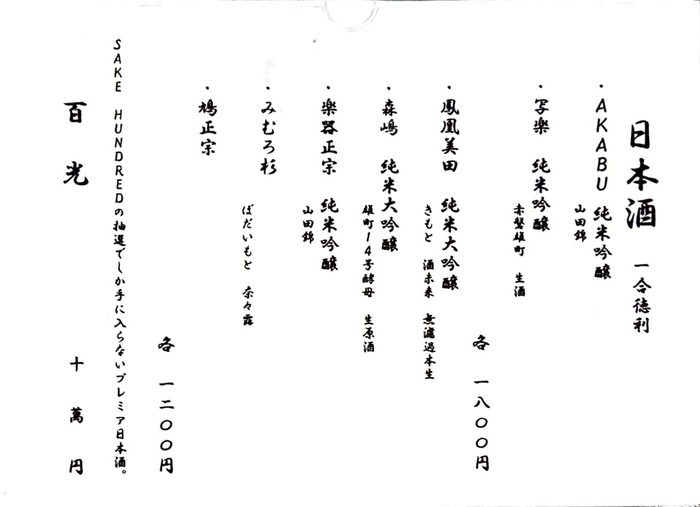 日本酒 一合徳利
・AKABU 純米吟醸
山田錦
・写楽 純米吟醸
赤磐雄町 生酒
・鳳凰美田 純米大吟醸
きもと 酒未来 無濾過本生
・森嶋 純米大吟醸
雄町14号酵母 生原酒
・楽器正宗 純米吟醸
山田錦
各 一八〇〇円
・みむろ杉
ぼだいもと 奈々露
・鳩正宗
各 一二〇〇円
SAKE HUNDREDの抽選でしか手に入らないプレミア日本酒。
百光 十萬円